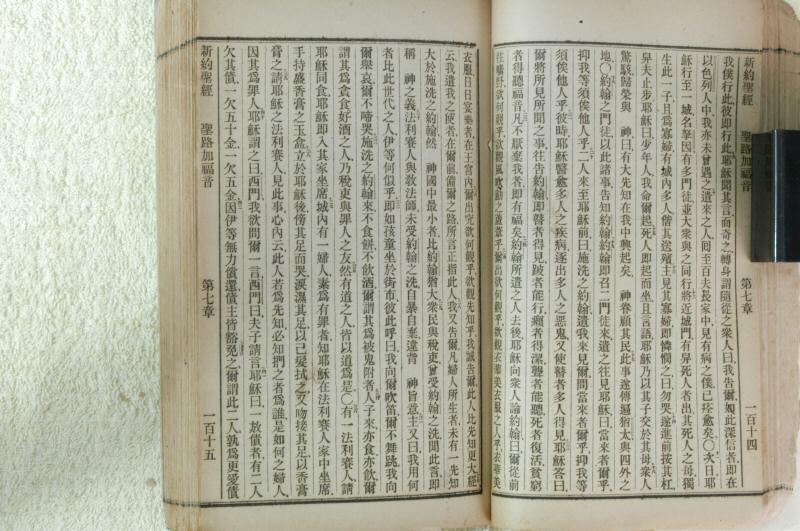 新約聖經 聖路加福音 第七章 一百十四
我僕行此彼即行此耶穌聞其言而奇之轉身謂隨從之衆人曰我告爾如此深信者即在
以色列人中我亦未曾遇之遣來之人囘至百夫長家中見有病之僕已痊愈矣〇次日耶
穌行至一城名拏因有多門徒並大衆與之同行將近城門有舁死人者出其死人之母獨
生此一子且爲寡婦有城內多人偕其送殯主見其寡婦即憐憫之曰勿哭遂進前按其杠
舁夫止步耶穌曰少年人我命爾起死人即起而坐且言語耶穌乃以其子交於其母衆人
驚駭歸榮與 神曰有大先知在我中興起矣 神眷顧其民此事遂傳遍猶太與四外之
地〇約翰之門徒以此諸事告知約翰約翰即召二門徒來遣之往見耶穌曰當來者爾乎
抑我等須俟他人乎二人來至耶穌前曰施洗之約翰遣我來見爾問當來者爾乎抑我等
須俟他人乎彼時耶穌醫愈多人之疾病逐出多人之惡鬼又使瞽者多人得見耶穌答曰
爾將所見所聞之事往告約翰即瞽者得見跛者能行癩者得潔聾者能聽死者復活貧窮
者得聽福音凡不厭棄我者即有福矣約翰所遣之人去後耶穌向衆人論約翰曰爾從前
往曠野欲何觀乎欲觀風吹動之蘆葦乎爾出欲何觀乎欲觀衣華美衣服之人乎衣華美
衣服日日宴樂者在王宮內爾出究欲何觀乎欲觀先知乎我誠告爾此人比先知更大經
云我遣我之使者在爾前備爾之路所言正指此人我又告爾凡婦人所生者未有一先知
大於施洗之約翰然 神國中最小者比約翰猶大衆民與稅吏曾受約翰之洗聞此言即
稱 神之義法利賽人與敎法師未受約翰之洗自暴自棄違背 神旨意主又曰我用何
者比此世代之人伊等何似乎即如孩童坐於街市彼此呼曰我向爾吹笛爾不舞蹈我向
爾舉哀爾不啼哭施洗之約翰來不食餅不飲酒爾謂其爲被鬼附者人子來亦食亦飲爾
謂其爲貪食好酒之人乃稅吏與罪人之友然有道之人皆以道爲是〇有一法利賽人請
耶穌同食耶穌即入其家坐席城內有一婦人素爲有罪者知耶穌在法利賽人家中坐席
手持盛香膏之玉盒立於耶穌後傍其足而哭淚濕其足以己髮拭之又吻接其足以香膏
膏之請耶穌之法利賽人見此事心內云此人若爲先知必知捫之者爲誰是如何之婦人
因其爲罪人耶穌謂之曰西門我欲問爾一言西門曰夫子請言耶穌曰一放債者有二人
欠其債一欠五十金一欠五金因伊等無力償還債主皆豁免之爾謂此二人孰爲更愛債
新約聖經 聖路加福音 第七章 一百十五